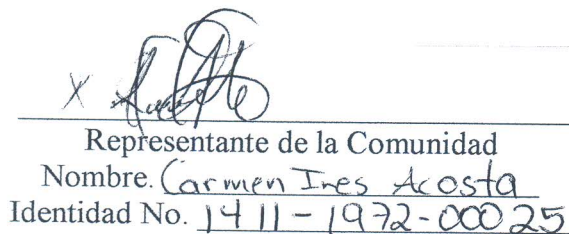 X
Representante de la Comunidad
Nombre. Carmen Ines Acosta
Identidad No. 1411-1972-00025